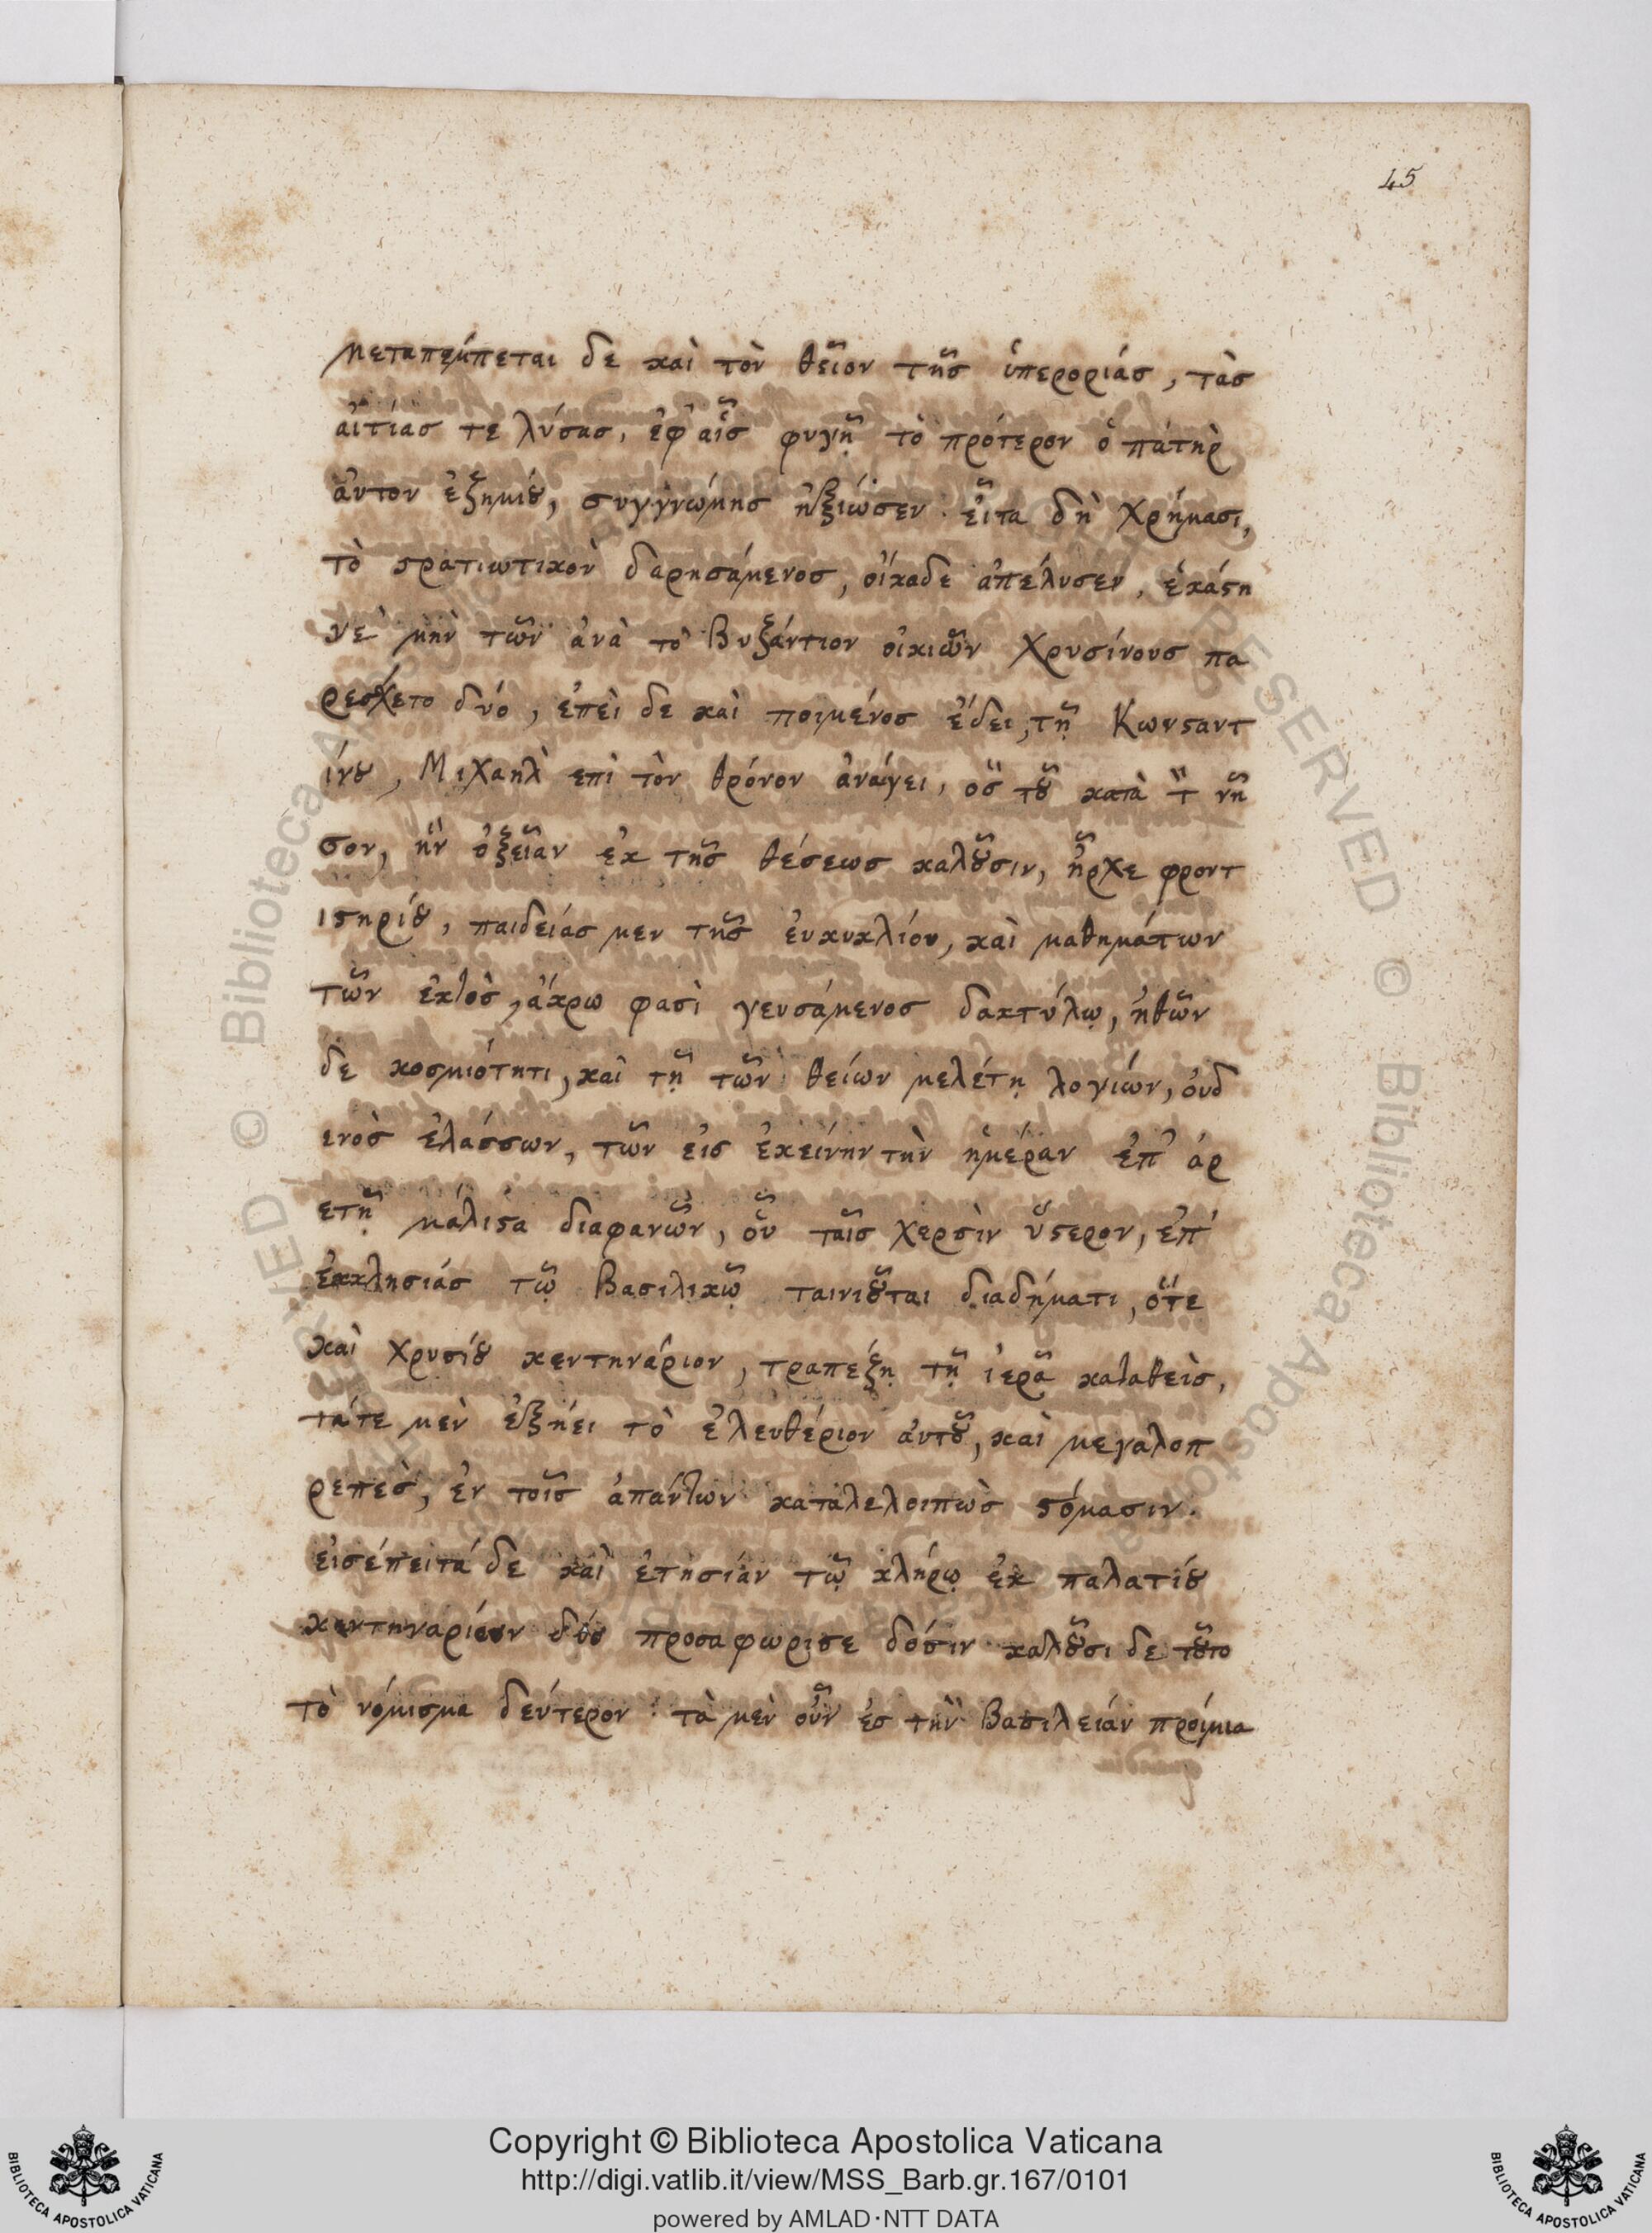 45
μεταπέμπεται δε καὶ τὸν θεῖον τῆς ὑπεροριάς, τὰς
αἰτίας τε λύσας, ἐφ' αἷς φυγῇ τὸ πρότερον ὁ πάτηρ
ἀυτον ἐζημιȣ, συγγνώμης ἠξιώσεν · εἶτα δὴ χρήμασι,
τὸ ϛρατιωτικὸν δαρησάμενος, οἴκαδε ἀπέλυσεν, ἑκάϛη
γε μὴν τῶν ἀνὰ τὸ Βυζάντιον οἰκιῶν χρυσίνους πα
ρεσχετο δύο, ἐπεὶ δε καὶ ποιμένος ἔδει, τῇ Κωνϛαντ
ίνȣ, Μιχαηλὰ επὶ τὸν θρόνον ἀνάγει, ὃς τȣ͂ κατὰ τ̀ νῆ
σον, ἣν ὀξεῖαν ἐκ τῆς θέσεως καλȣ͂σιν, ἦρχε φροντ
ιϛηρίȣ, παιδειάς μεν τῆς ἐνκυκλίου, καὶ μαθημάτων
τῶν ἐκτὸς, ἄκρω φασὶ γευσάμενος δακτύλῳ, ἠθῶν
δε κοσμιότητι, καὶ τῇ τῶν θείων μελέτῃ λογιών, ὀυδ
ενὸς ἐλάσσων, τῶν εἰς ἐκείνην τὴν ἡμέραν ἐπ' ἀρ
ετῇ μάλιϛα διαφανῶν, οὗ ταῖς χερσὶν ὕϛερον, ἐπ'
ἐκκλησιάς τῷ Βασιλικῷ ταινιȣ͂ται διαδήματι, ὅτε
καὶ χρυσίȣ κεντηνάριον, τραπέζῃ τῇ ἱερᾷ καταθεὶς,
τά τε μὲν ἐξῄει τὸ ἐλευθέριον ἀυτȣ͂, καὶ μεγαλοπ
ρεπὲς, ἐν τοῖς ἁπάντων καταλελοιπὼς ϛόμασιν.
εἰσέπειτά δε καὶ ἐτησιάν τῷ κλήρῳ ἐκ παλατίȣ
κεντηναρίων δύο προσαφωρισε δόσιν · καλȣ͂σι δε τȣ͂το
τὸ νόμισμα δεύτερον : τὰ μὲν οὖν ἐς τὴν Βασιλειάν πρόιμια
Copyright © Biblioteca Apostolica Vaticana
http://digi.vatlib.it/view/MSS_Barb.gr.167/0101
powered by AMLAD·NTT DATA
BIBLIOTECA APOSTOLICA VATICANA
BIBLIOTECA APOSTOLICA VATICANA